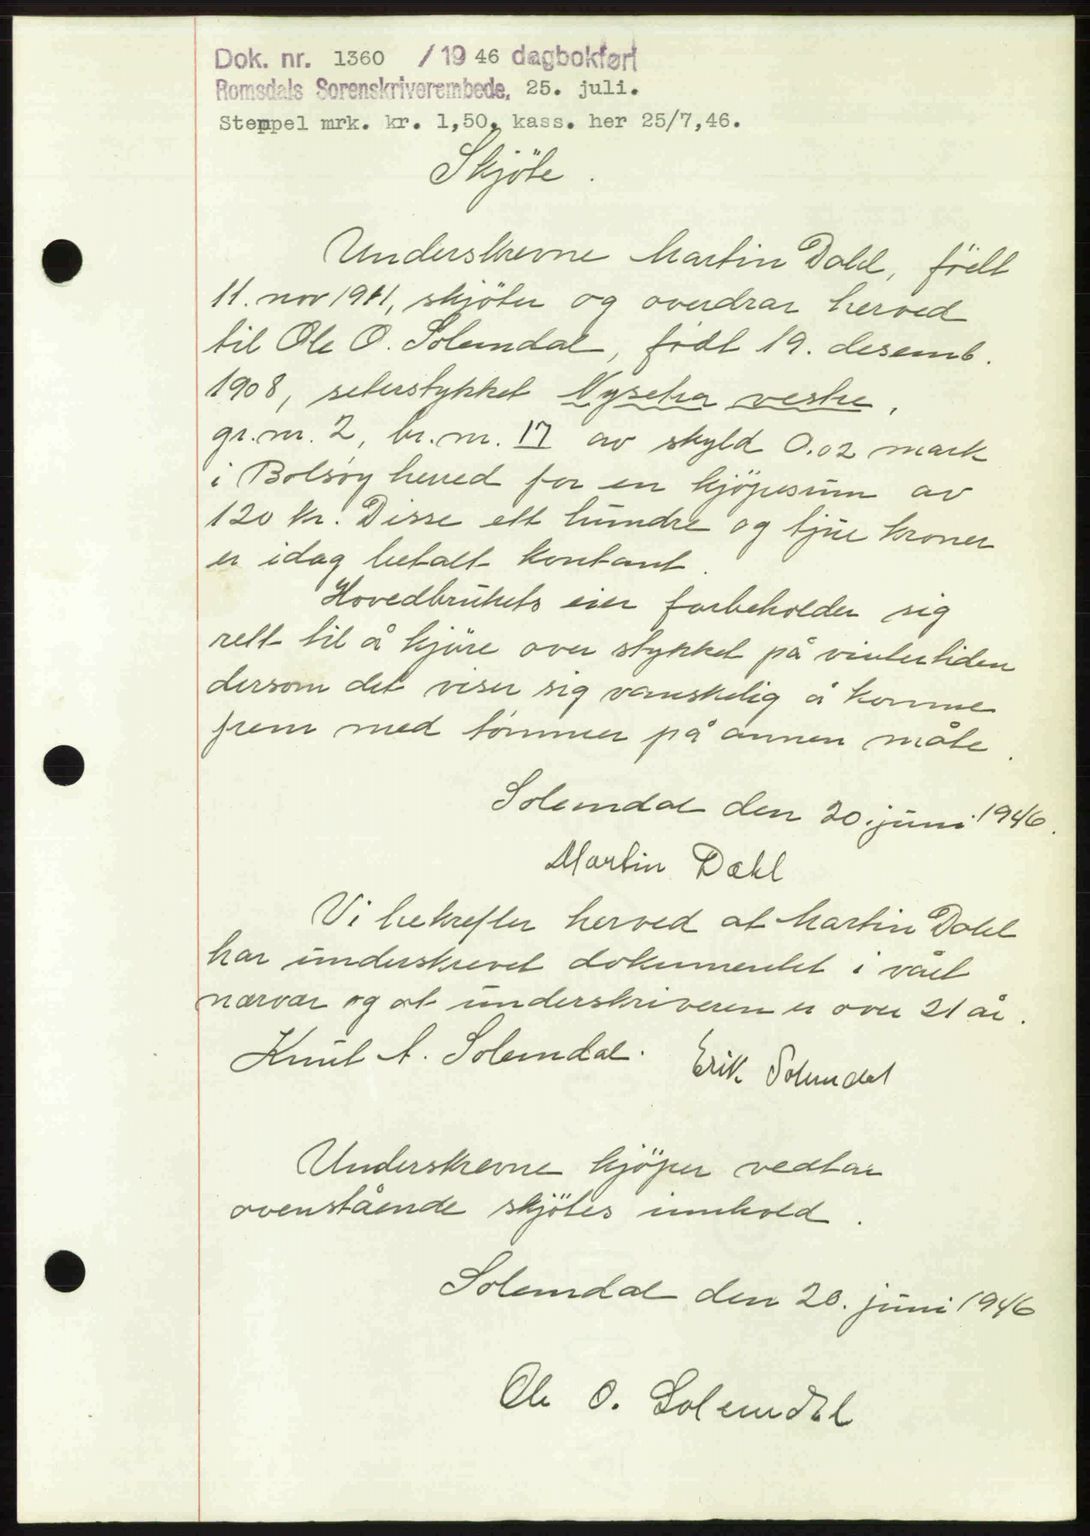 Dok. nr. 1360 / 19 46 dagbokført
Romsdals Sorenskriverembede, 25. juli.
Stempel mrk. kr. 1,50, kass. her 25/7,46.
Skjöte.
Underskrevne Martin Dahl, födt
11. nov 1911, skjöter og overdrar herved
til Ole O. Solemdal, födt 19. desemb.
1908, seterstykket Nysetra vestre,
gr.nr. 2, br.nr. 17 av skyld 0.02 mark
i Bolsöy herred for en kjöpesum av
120 kr. Disse ett hundre og tjue kroner
er idag betalt kontant.
Hovedbrukets eier forbeholder sig
rett til å kjöre over stykket på vintertiden
dersom det viser sig vanskelig å komme
frem med tömmer på annen måte.
Solemdal den 20. juni 1946.
Martin Dahl
Vi bekrefter herved at Martin Dahl
har underskrevet dokumentet i vårt
nærvær og at underskriveren er over 21 år.
Knut A. Solemdal. Erik Solemdal
Underskrevne kjöper vedtar
ovenstående skjötes innhold.
Solemdal den 20. juni 1946
Ole O. Solemdal